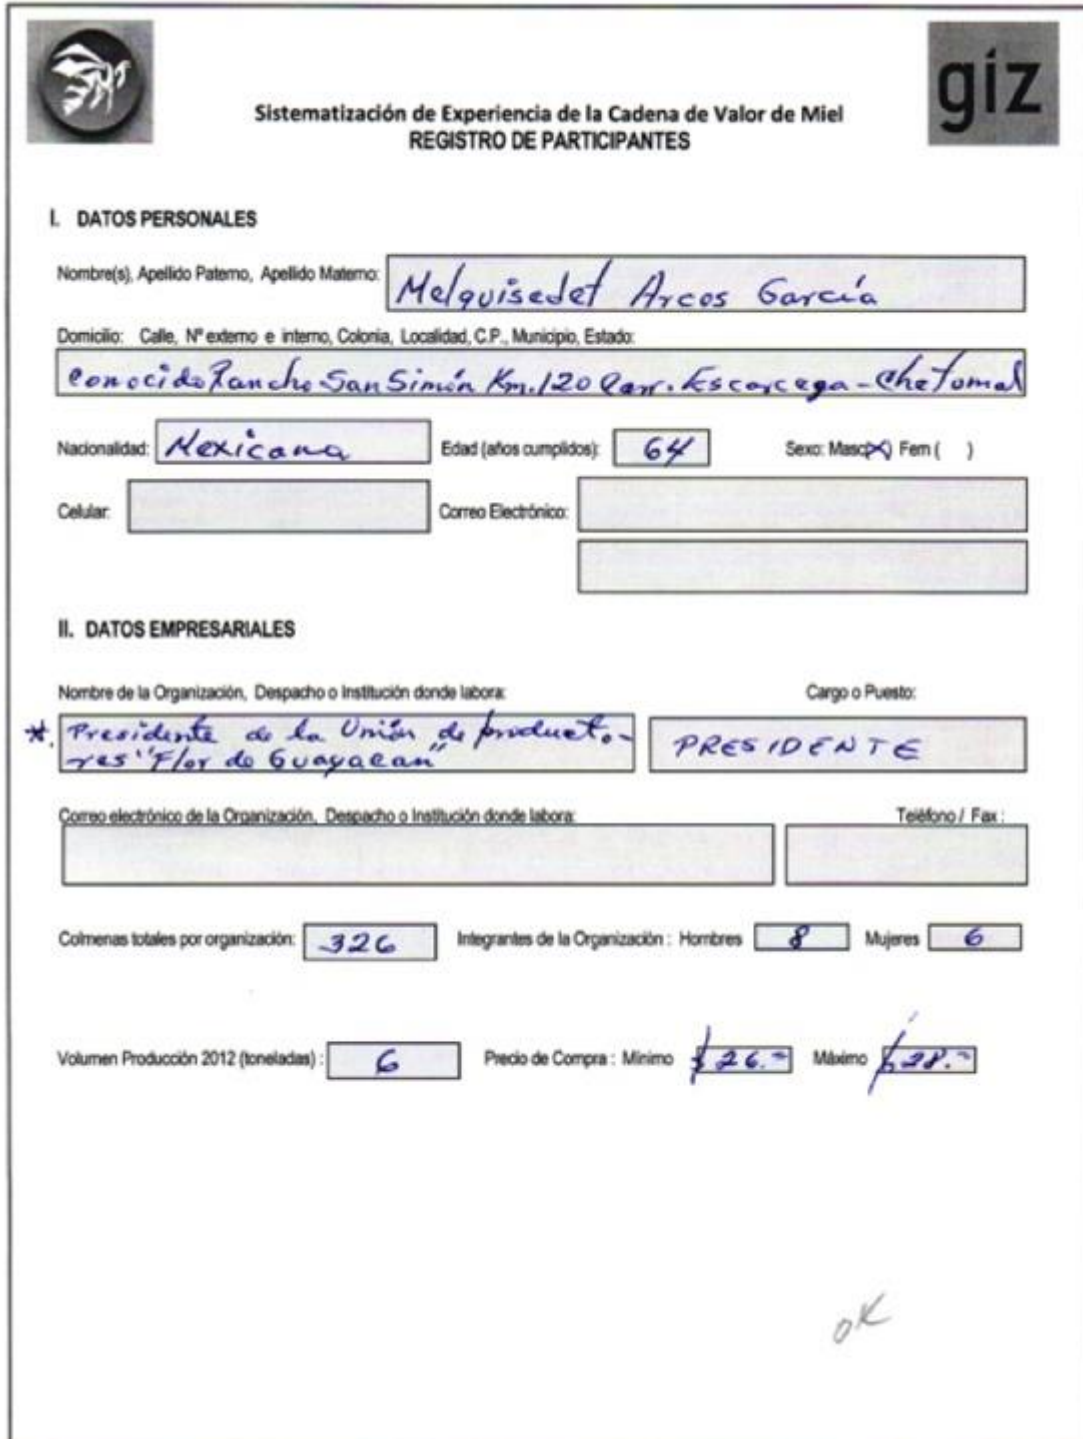 giz
Sistematización de Experiencia de la Cadena de Valor de Miel
REGISTRO DE PARTICIPANTES
I. DATOS PERSONALES
Nombre(s), Apellido Paterno, Apellido Materno: Melquisedet Arcos García
Domicilio: Calle, Nº externo e interno, Colonia, Localidad, C.P., Municipio, Estado:
Conocido Rancho San Simón Km. 120 Carr. Escarcega - Chetumal
Nacionalidad: Mexicana Edad (años cumplidos): 64 Sexo: Masc(X) Fem ( )
Celular: Correo Electrónico:
II. DATOS EMPRESARIALES
Nombre de la Organización, Despacho o Institución donde labora: Cargo o Puesto:
*. Presidente de la Unión de producto- PRESIDENTE
res "Flor de Guayacan"
Correo electrónico de la Organización, Despacho o Institución donde labora: Teléfono / Fax :
Colmenas totales por organización: 326 Integrantes de la Organización : Hombres 8 Mujeres 6
Volumen Producción 2012 (toneladas) : 6 Precio de Compra : Mínimo $26.= Máximo $28.=
OK